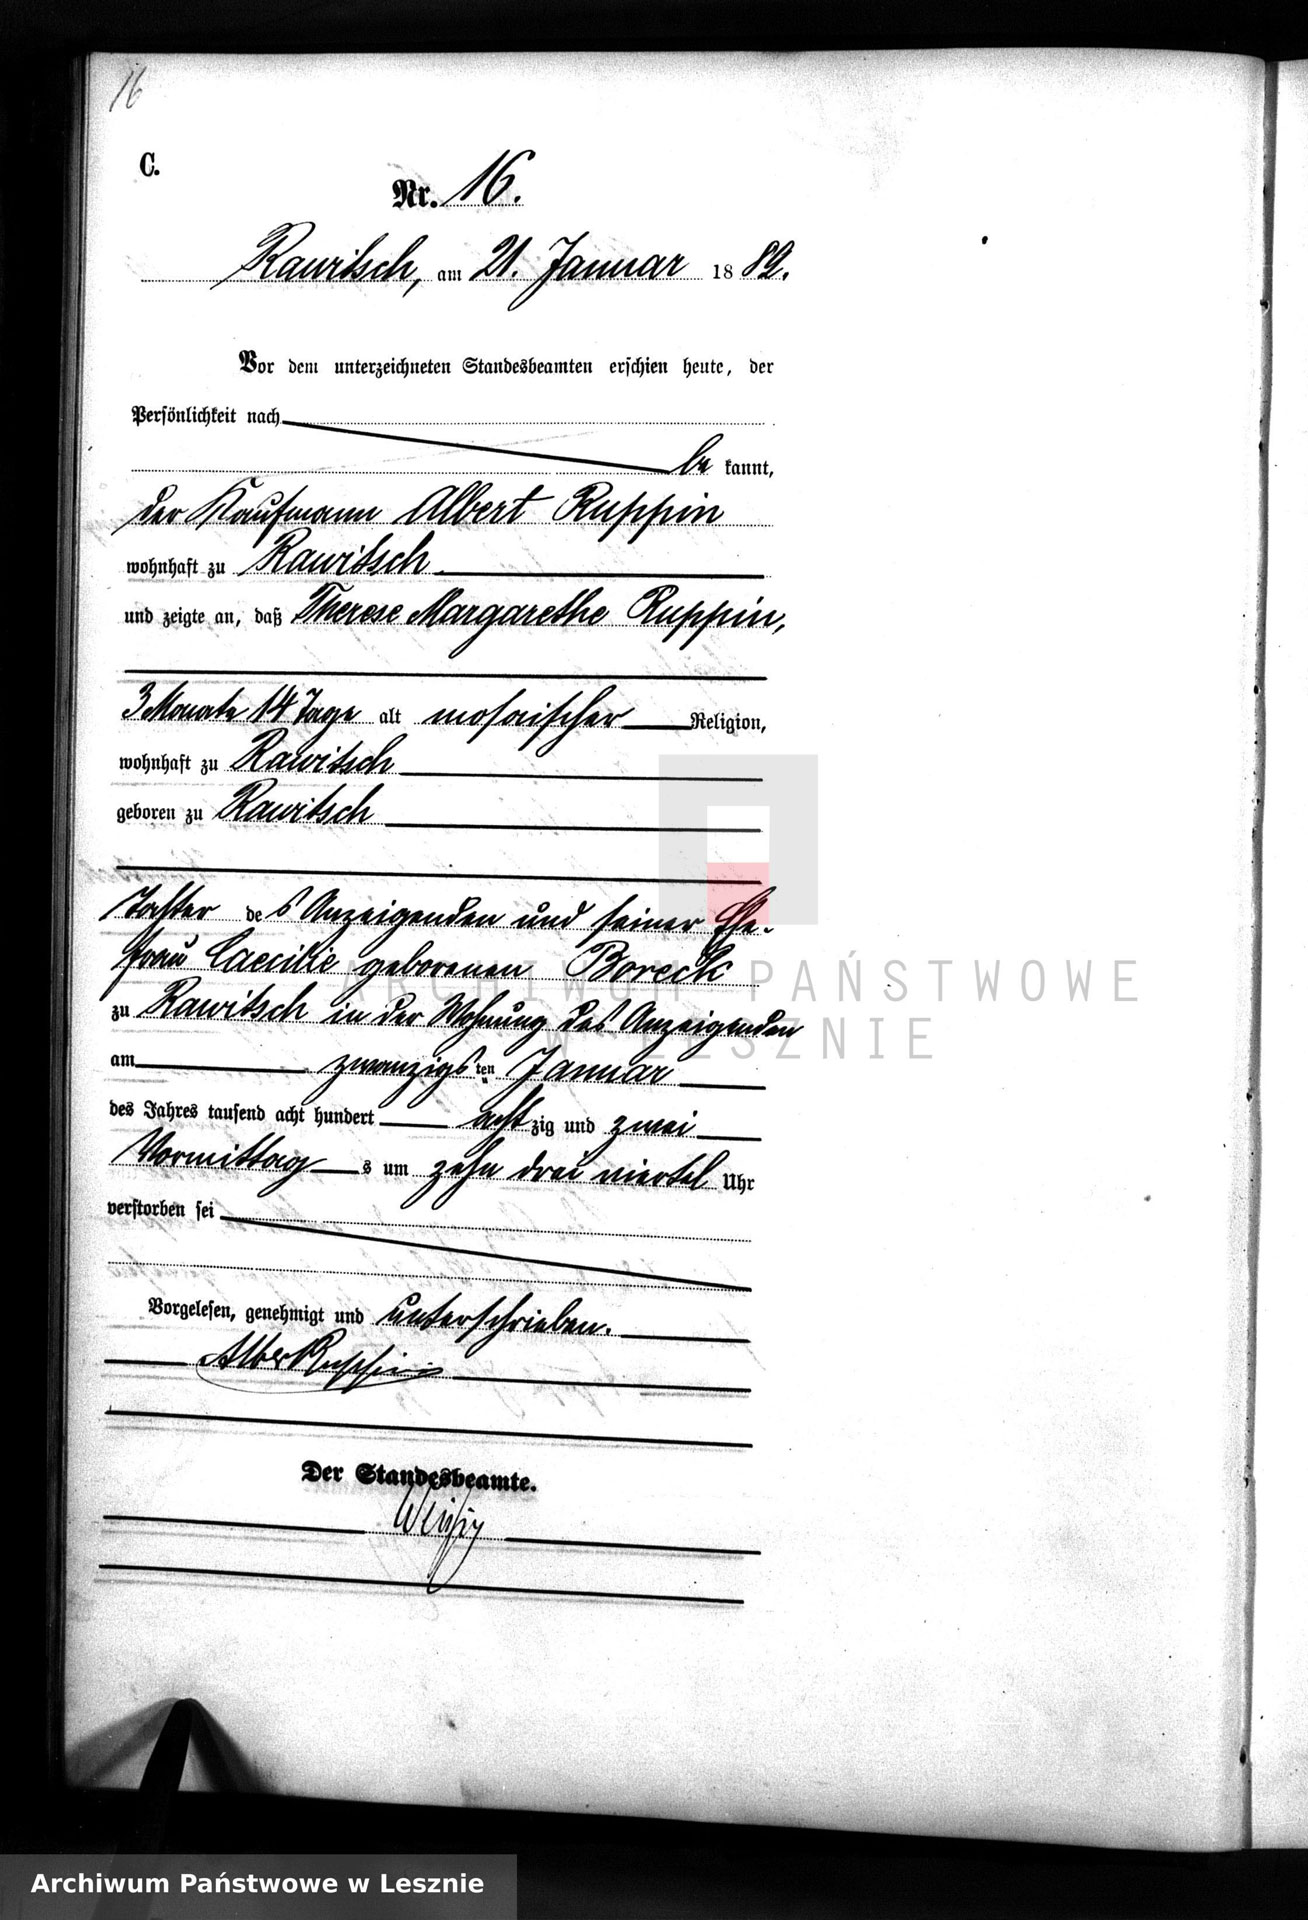 16
C.
Nr. 16.
Rawitsch, am 21. Januar 1882.
Vor dem unterzeichneten Standesbeamten erschien heute, der
Persönlichkeit nach
be kannt,
der Kaufmann Albert Ruppin
wohnhaft zu Rawitsch
und zeigte an, daß Therese Margarethe Ruppin,
3 Monate 14 Tage alt mosaischer Religion,
wohnhaft zu Rawitsch
geboren zu Rawitsch
Tochter des Anzeigenden und seiner Ehe-
frau Caecilie geborenen Boreck
zu Rawitsch in der Wohnung des Anzeigenden
am zwanzigsten Januar
des Jahres tausend acht hundert achtzig und zwei
Vormittags um zehn drei viertel Uhr
verstorben sei
Vorgelesen, genehmigt und unterschrieben.
Albert Ruppin
Der Standesbeamte.
ARCHIWUM PAŃSTWOWE
W LESZNIE
Archiwum Państwowe w Lesznie